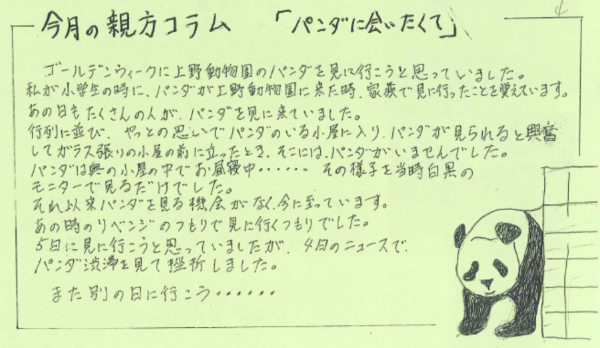 今月の親方コラム 「パンダに会いたくて」
ゴールデンウィークに上野動物園のパンダを見に行こうと思っていました。
私が小学生の時に、パンダが上野動物園に来た時、家族で見に行ったことを覚えています。
あの日もたくさんの人が、パンダを見に来ていました。
行列に並び、やっとの思いでパンダのいる小屋に入り、パンダが見られると興奮
してガラス張りの小屋の前に立ったとき、そこには、パンダがいませんでした。
パンダは奥の小屋の中でお昼寝中・・・・・・ その様子を当時白黒の
モニターで見るだけでした。
それ以来パンダを見る機会がなく、今に至っています。
あの時のリベンジのつもりで見に行くつもりでした。
5日に見に行こうと思っていましたが、4日のニュースで、
パンダ渋滞を見て挫折しました。
また別の日に行こう・・・・・・